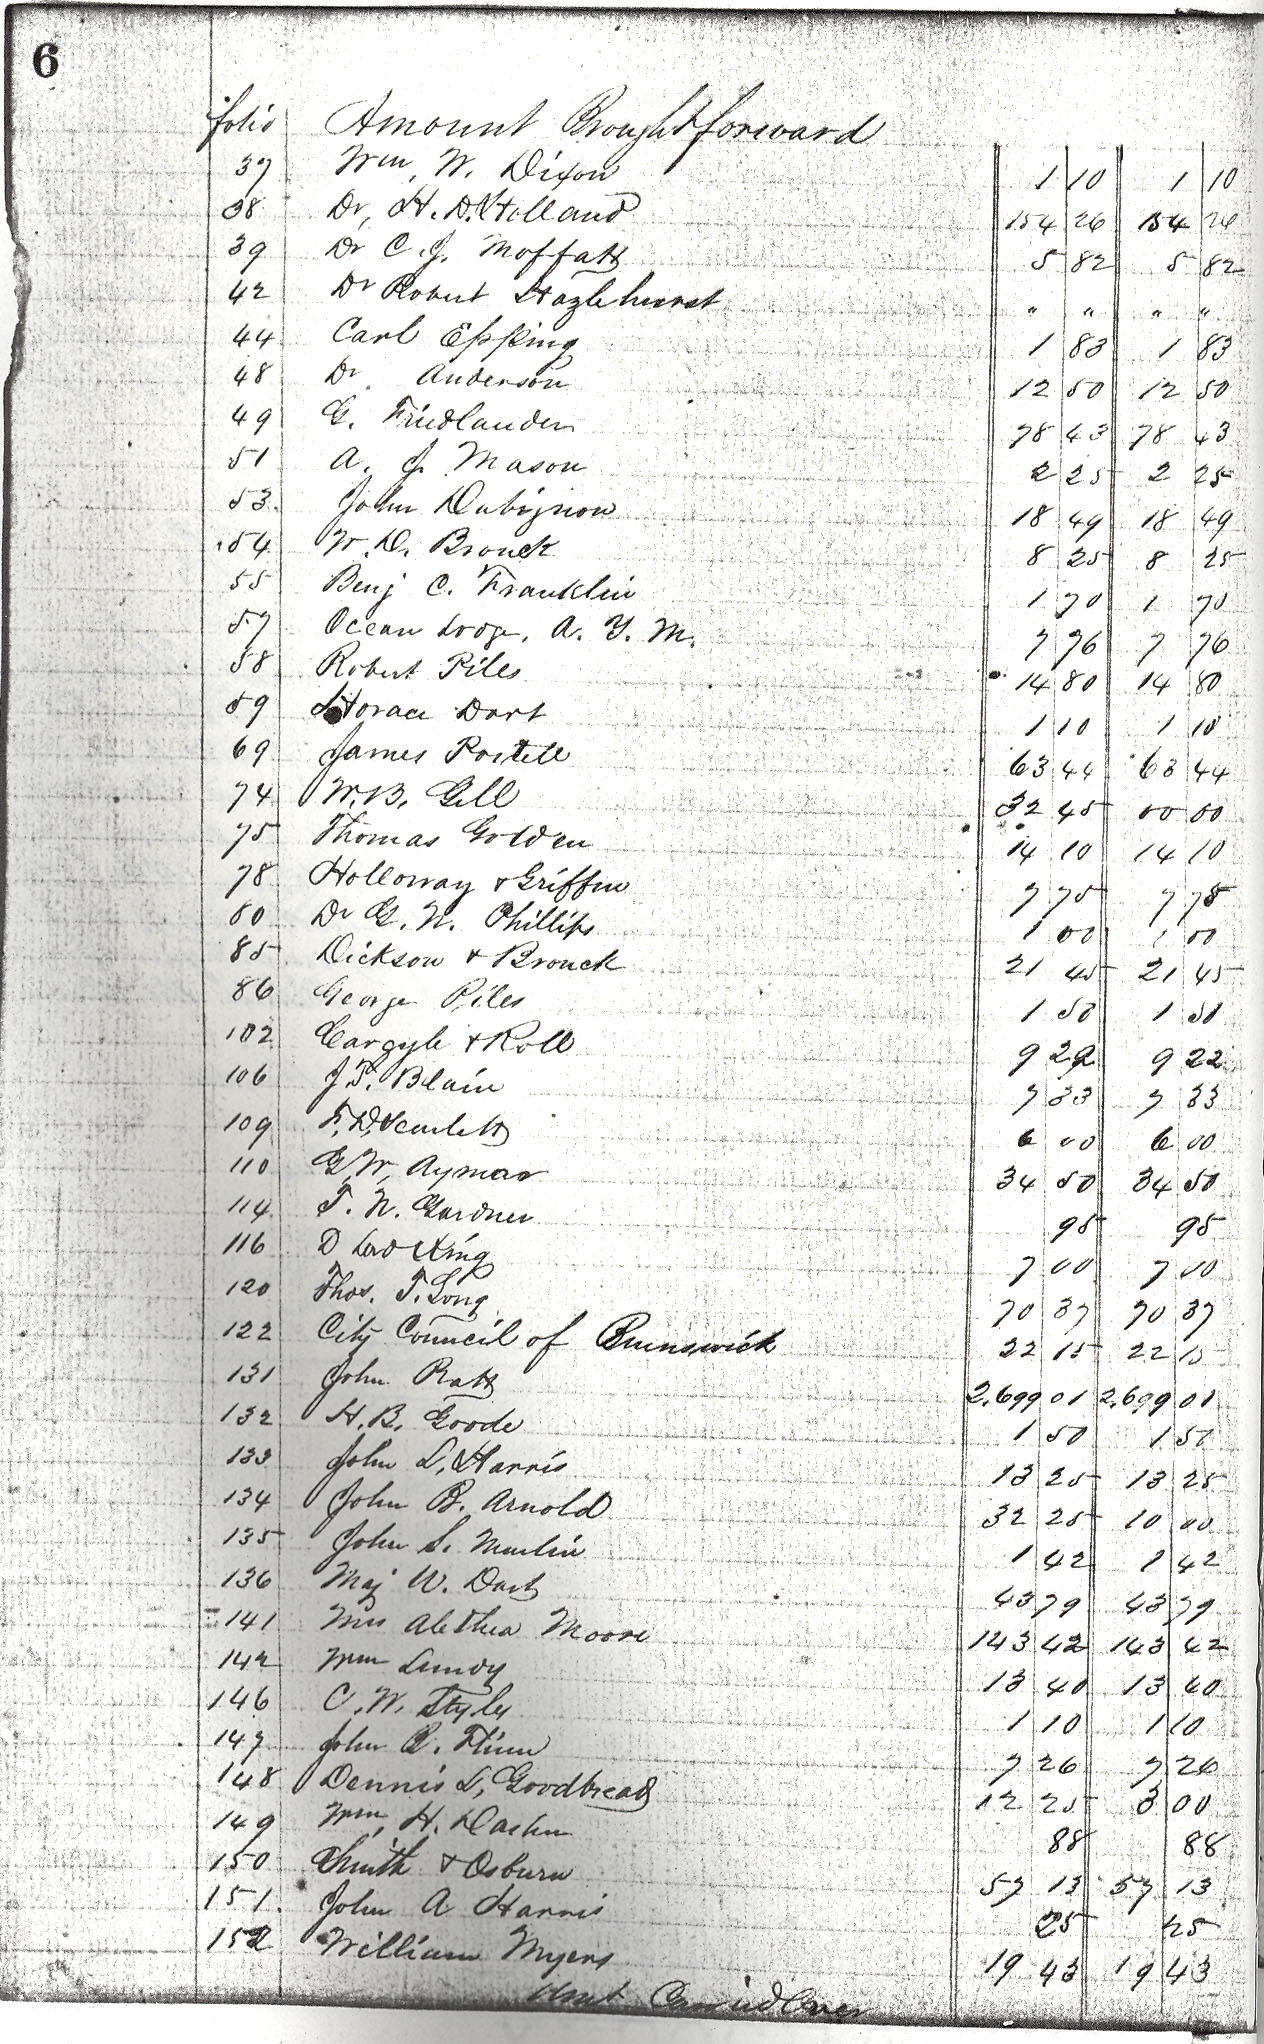 6
folio Amount Brought forward
37 Wm. W. Dixon 1 10 1 10
38 Dr. H. D. Holland 154 26 154 26
39 Dr C. J. Moffatt 5 82 5 82
42 Dr Robert Hazlehurst " " " "
44 Carl Epping 1 83 1 83
48 Dr. Anderson 12 50 12 50
49 G. Friedlander 78 43 78 43
51 A. J. Mason 2 25 2 25
53. John Dubignon 18 49 18 49
54 W. D. Bronck 8 25 8 25
55 Benj C. Franklin 1 70 1 70
57 Ocean Lodge, A. Y. M. 7 76 7 76
58 Robert Piles 14 80 14 80
59 Horace Dart 1 10 1 10
69 James Postell 63 44 63 44
74 W. B. Gill 32 45 00 00
75 Thomas Golden 14 10 14 10
78 Holloway & Griffin 7 75 7 75
80 Dr G. W. Phillips 1 00 1 00
85 Dickson & Bronck 21 45 21 45
86 George Piles 1 50 1 50
102 Cargyle & Roll 9 22 9 22
106 J. T. Blain 7 33 7 33
109 F. D. Scarlett 6 00 6 00
110 G. W. Aymar 34 50 34 50
114 T. N. Gardner 95 95
116 D Lord King 7 00 7 00
120 Thos. T. Long 70 37 70 37
122 City Council of Brunswick 22 15 22 15
131 John Ratt 2,699 01 2,699 01
132 H. B. Goode 1 50 1 50
133 John L. Harris 13 25 13 25
134 John B. Arnold 32 25 10 00
135 John S. Marlin 1 42 1 42
136 Maj W. Dart 43 79 43 79
141 Mrs Alethea Moore 143 42 143 42
142 Wm Lundy 13 40 13 40
146 C. W. Styles 1 10 1 10
147 John C. Flinn 7 26 7 26
148 Dennis L. Goodbread 12 25 3 00
149 Wm, H. Dasher 88 88
150 Smith & Osburn 57 13 57 13
151. John A Harris 25 25
152 William Myers 19 43 19 43
Amt Carried Over